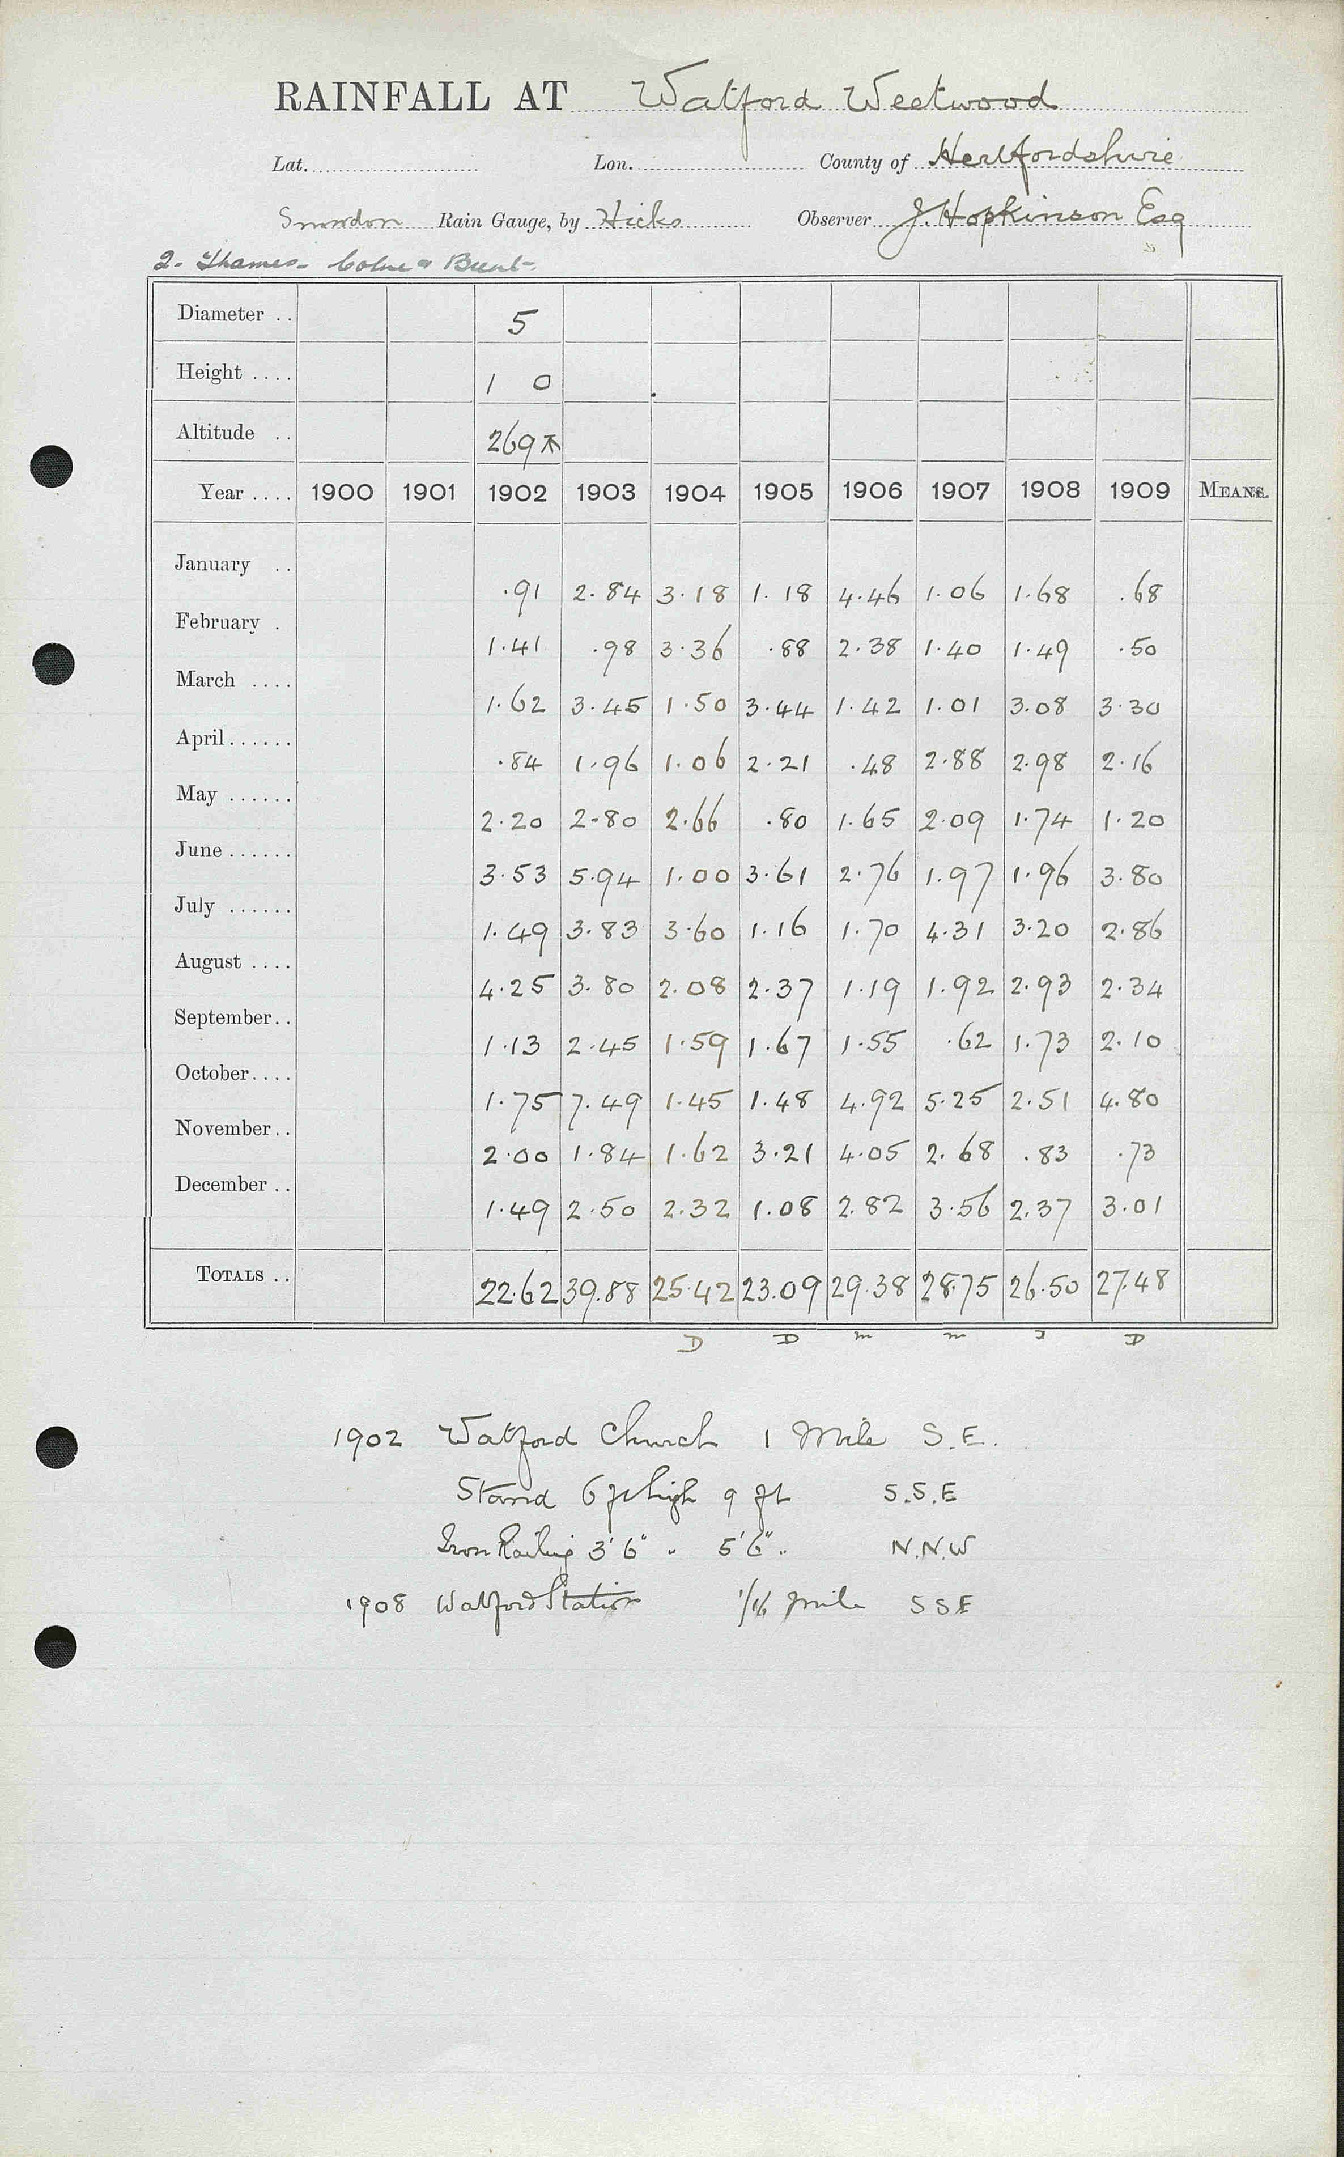 RAINFALL AT Watford Weetwood
Lat. Lon. County of Hertfordshire
Snowdon Rain Gauge, by Hicks Observer J. Hopkinson Esq
2. Thames - Colne &
Diameter .. 5
Height .... 1 0
Altitude .. 269
Year .... 1900 1901 1902 1903 1904 1905 1906 1907 1908 1909 MEANS.
January .. .91 2.84 3.18 1.18 4.46 1.06 1.68 .68
February . 1.41 .98 3.36 .88 2.38 1.40 1.49 .50
March .... 1.62 3.45 1.50 3.44 1.42 1.01 3.08 3.30
April...... .84 1.96 1.06 2.21 .48 2.88 2.98 2.16
May ...... 2.20 2.80 2.66 .80 1.65 2.09 1.74 1.20
June...... 3.53 5.94 1.00 3.61 2.76 1.97 1.96 3.80
July ...... 1.49 3.83 3.60 1.16 1.70 4.31 3.20 2.86
August .... 4.25 3.80 2.08 2.37 1.19 1.92 2.93 2.34
September.. 1.13 2.45 1.59 1.67 1.55 .62 1.73 2.10
October.... 1.75 7.49 1.45 1.48 4.92 5.25 2.51 4.80
November.. 2.00 1.84 1.62 3.21 4.05 2.68 .83 .73
December .. 1.49 2.50 2.32 1.08 2.82 3.56 2.37 3.01
TOTALS .. 22.62 39.88 25.42 23.09 29.38 28.75 26.50 27.48
D D m m J D
1902 Watford Church 1 Mile S.E.
Stand 6 ft high 9 ft S.S.E
Iron Railing 3'6" " 5'6" N.N.W
1908 Watford Station 1/16 mile SSE